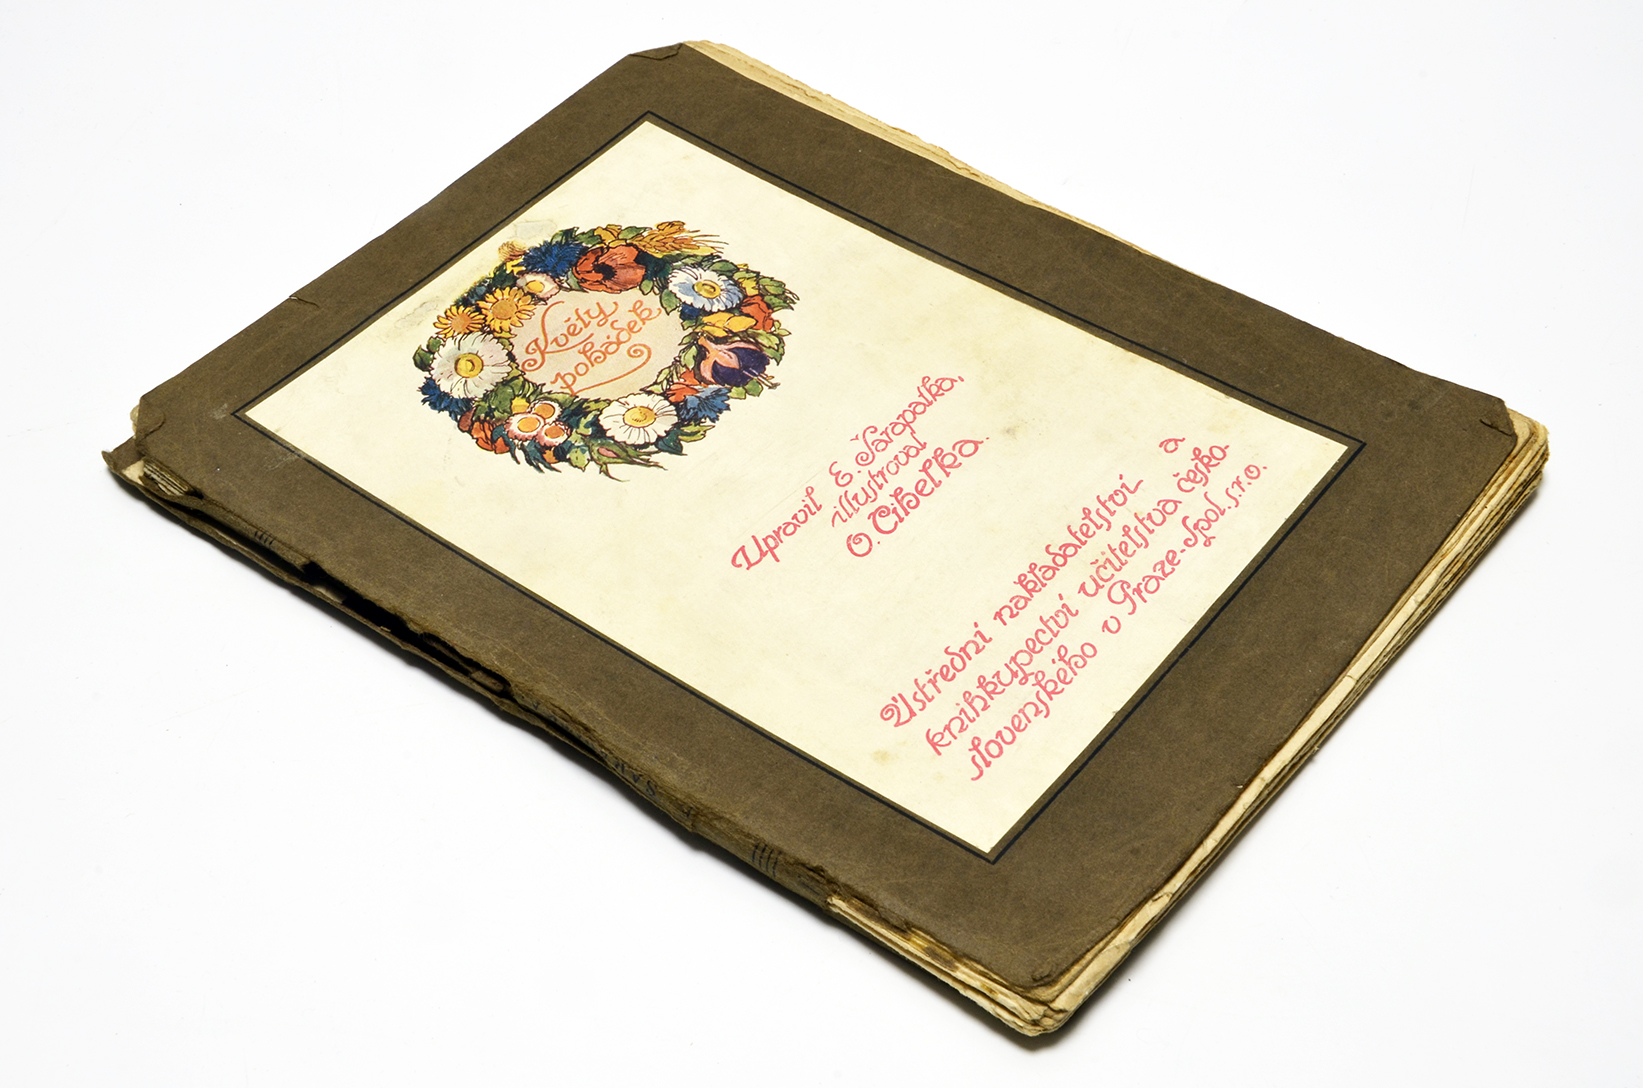 Květy
pohádek
Upravil E. Šarapatka,
illustroval
O. Cibelka.
Ústřední nakladatelství a
knihkupectví učitelstva česko-
slovenského v Praze-Spol.s.r.o.